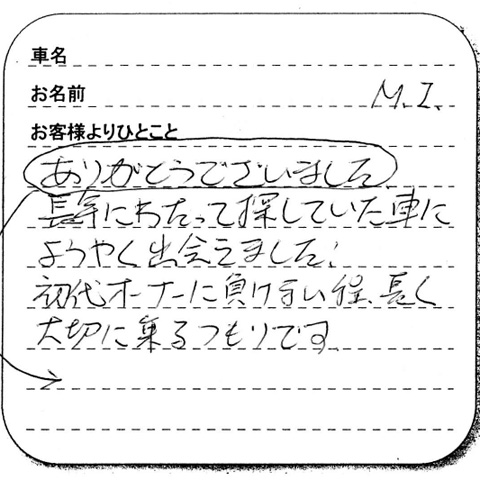 車名
お名前 M.I.
お客様よりひとこと
ありがとうございました
長年にわたって探していた車に
ようやく出会えました!
初代オーナーに負けない程、長く
大切に乗るつもりです